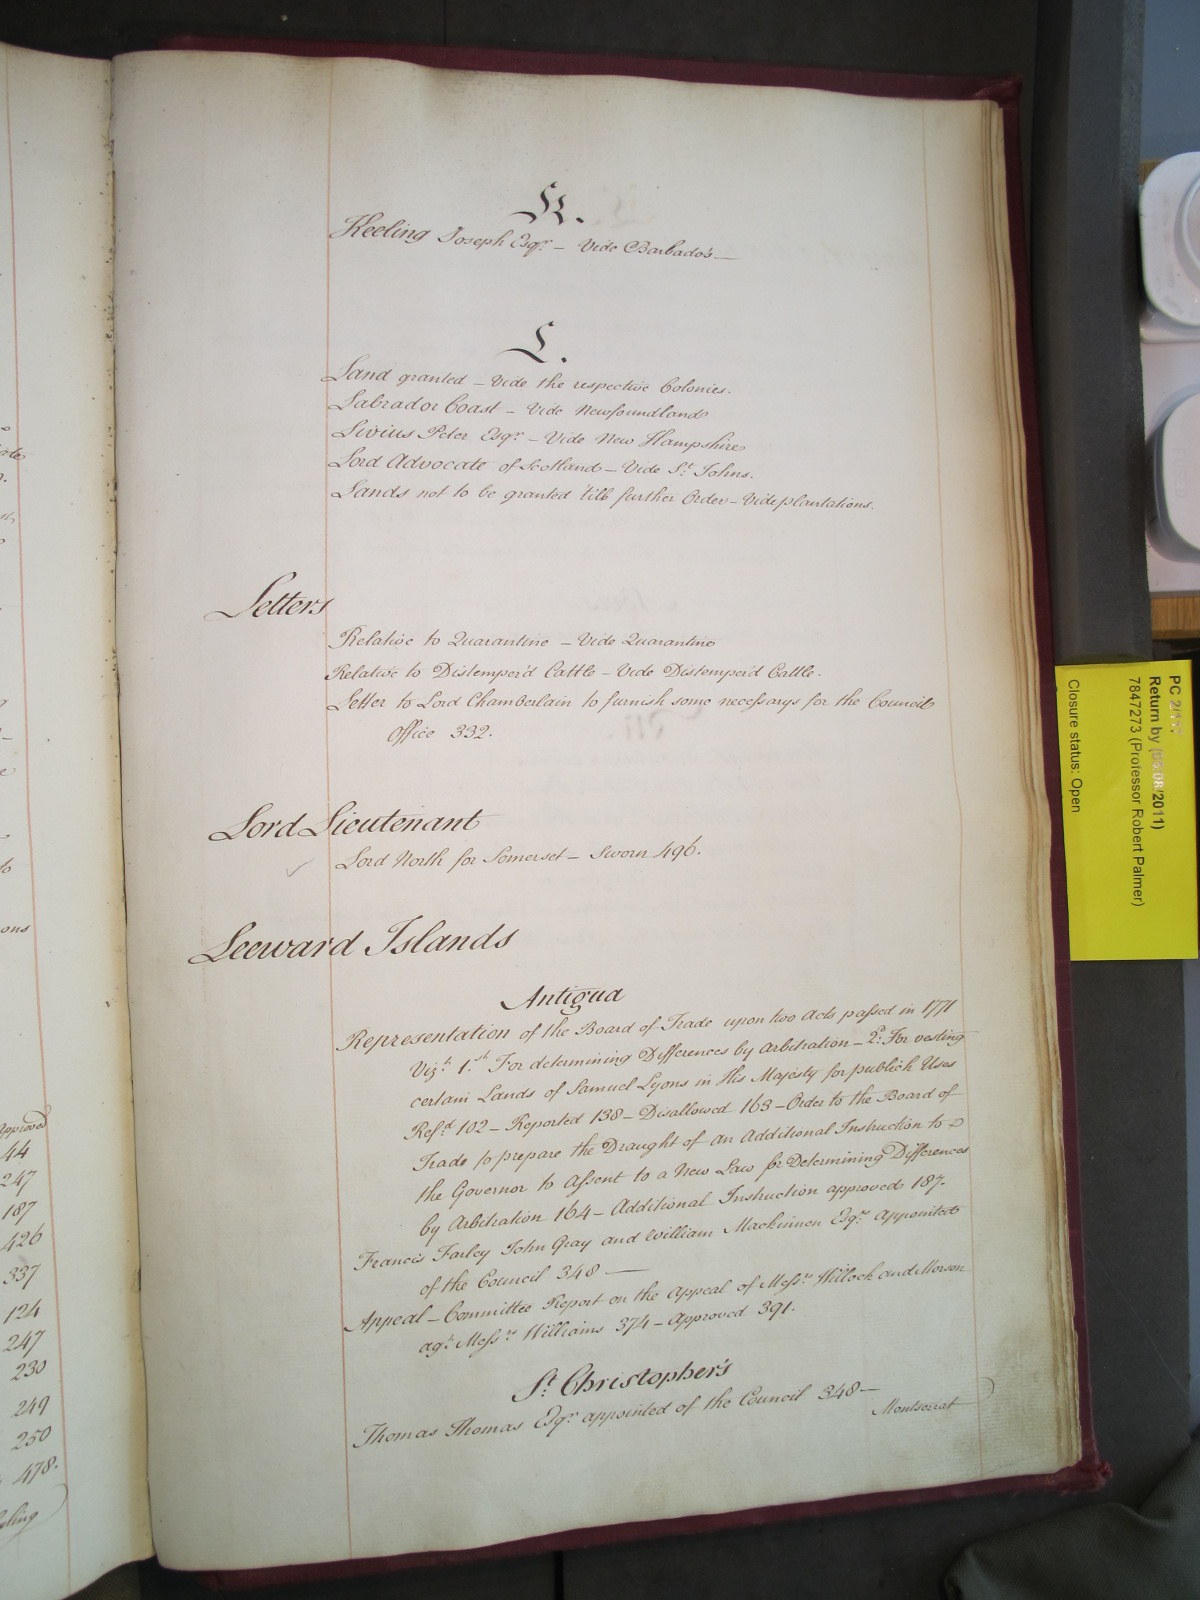 K.
Keeling Joseph Esqr. – Vide Barbados —
L.
Land granted – Vide the respective Colonies.
Labrador Coast – Vide Newfoundland
Livius Peter Esqr. – Vide New Hampshire
Lord Advocate of Scotland – Vide St. Johns.
Lands not to be granted 'till further Order – Vide plantations.
Letters
Relative to Quarantine – Vide Quarantine
Relative to Distemper'd Cattle – Vide Distemper'd Cattle.
Letter to Lord Chamberlain to furnish some necessarys for the Council
Office 332.
Lord Lieutenant
Lord North for Somerset – Sworn 496.
Leeward Islands
Antigua
Representation of the Board of Trade upon two Acts passed in 1771
Vizt. 1.st For determining Differences by Arbitration – 2d. For vesting
certain Lands of Samuel Lyons in His Majesty for publick Uses
Refd. 102 – Reported 138 – Disallowed 163 – Order to the Board of
Trade to prepare the Draught of an Additional Instruction to
the Governor to Assent to a New Law for Determining Differences
by Arbitration 164 – Additional Instruction approved 187.
Francis Farley John Gray and William Mackinnen Esqrs. Appointed
of the Council 348 —
Appeal – Committee Report on the Appeal of Messrs. Willock and Morson
agt. Messrs. Williams 374 – Approved 391.
St. Christopher's
Thomas Thomas Esqr. appointed of the Council 348 —
Montserrat
Approved
44
247
187
426
337
124
247
230
249
250
478.
PC 2/117
Return by (05/08/2011)
7847273 (Professor Robert Palmer)
Closure status: Open